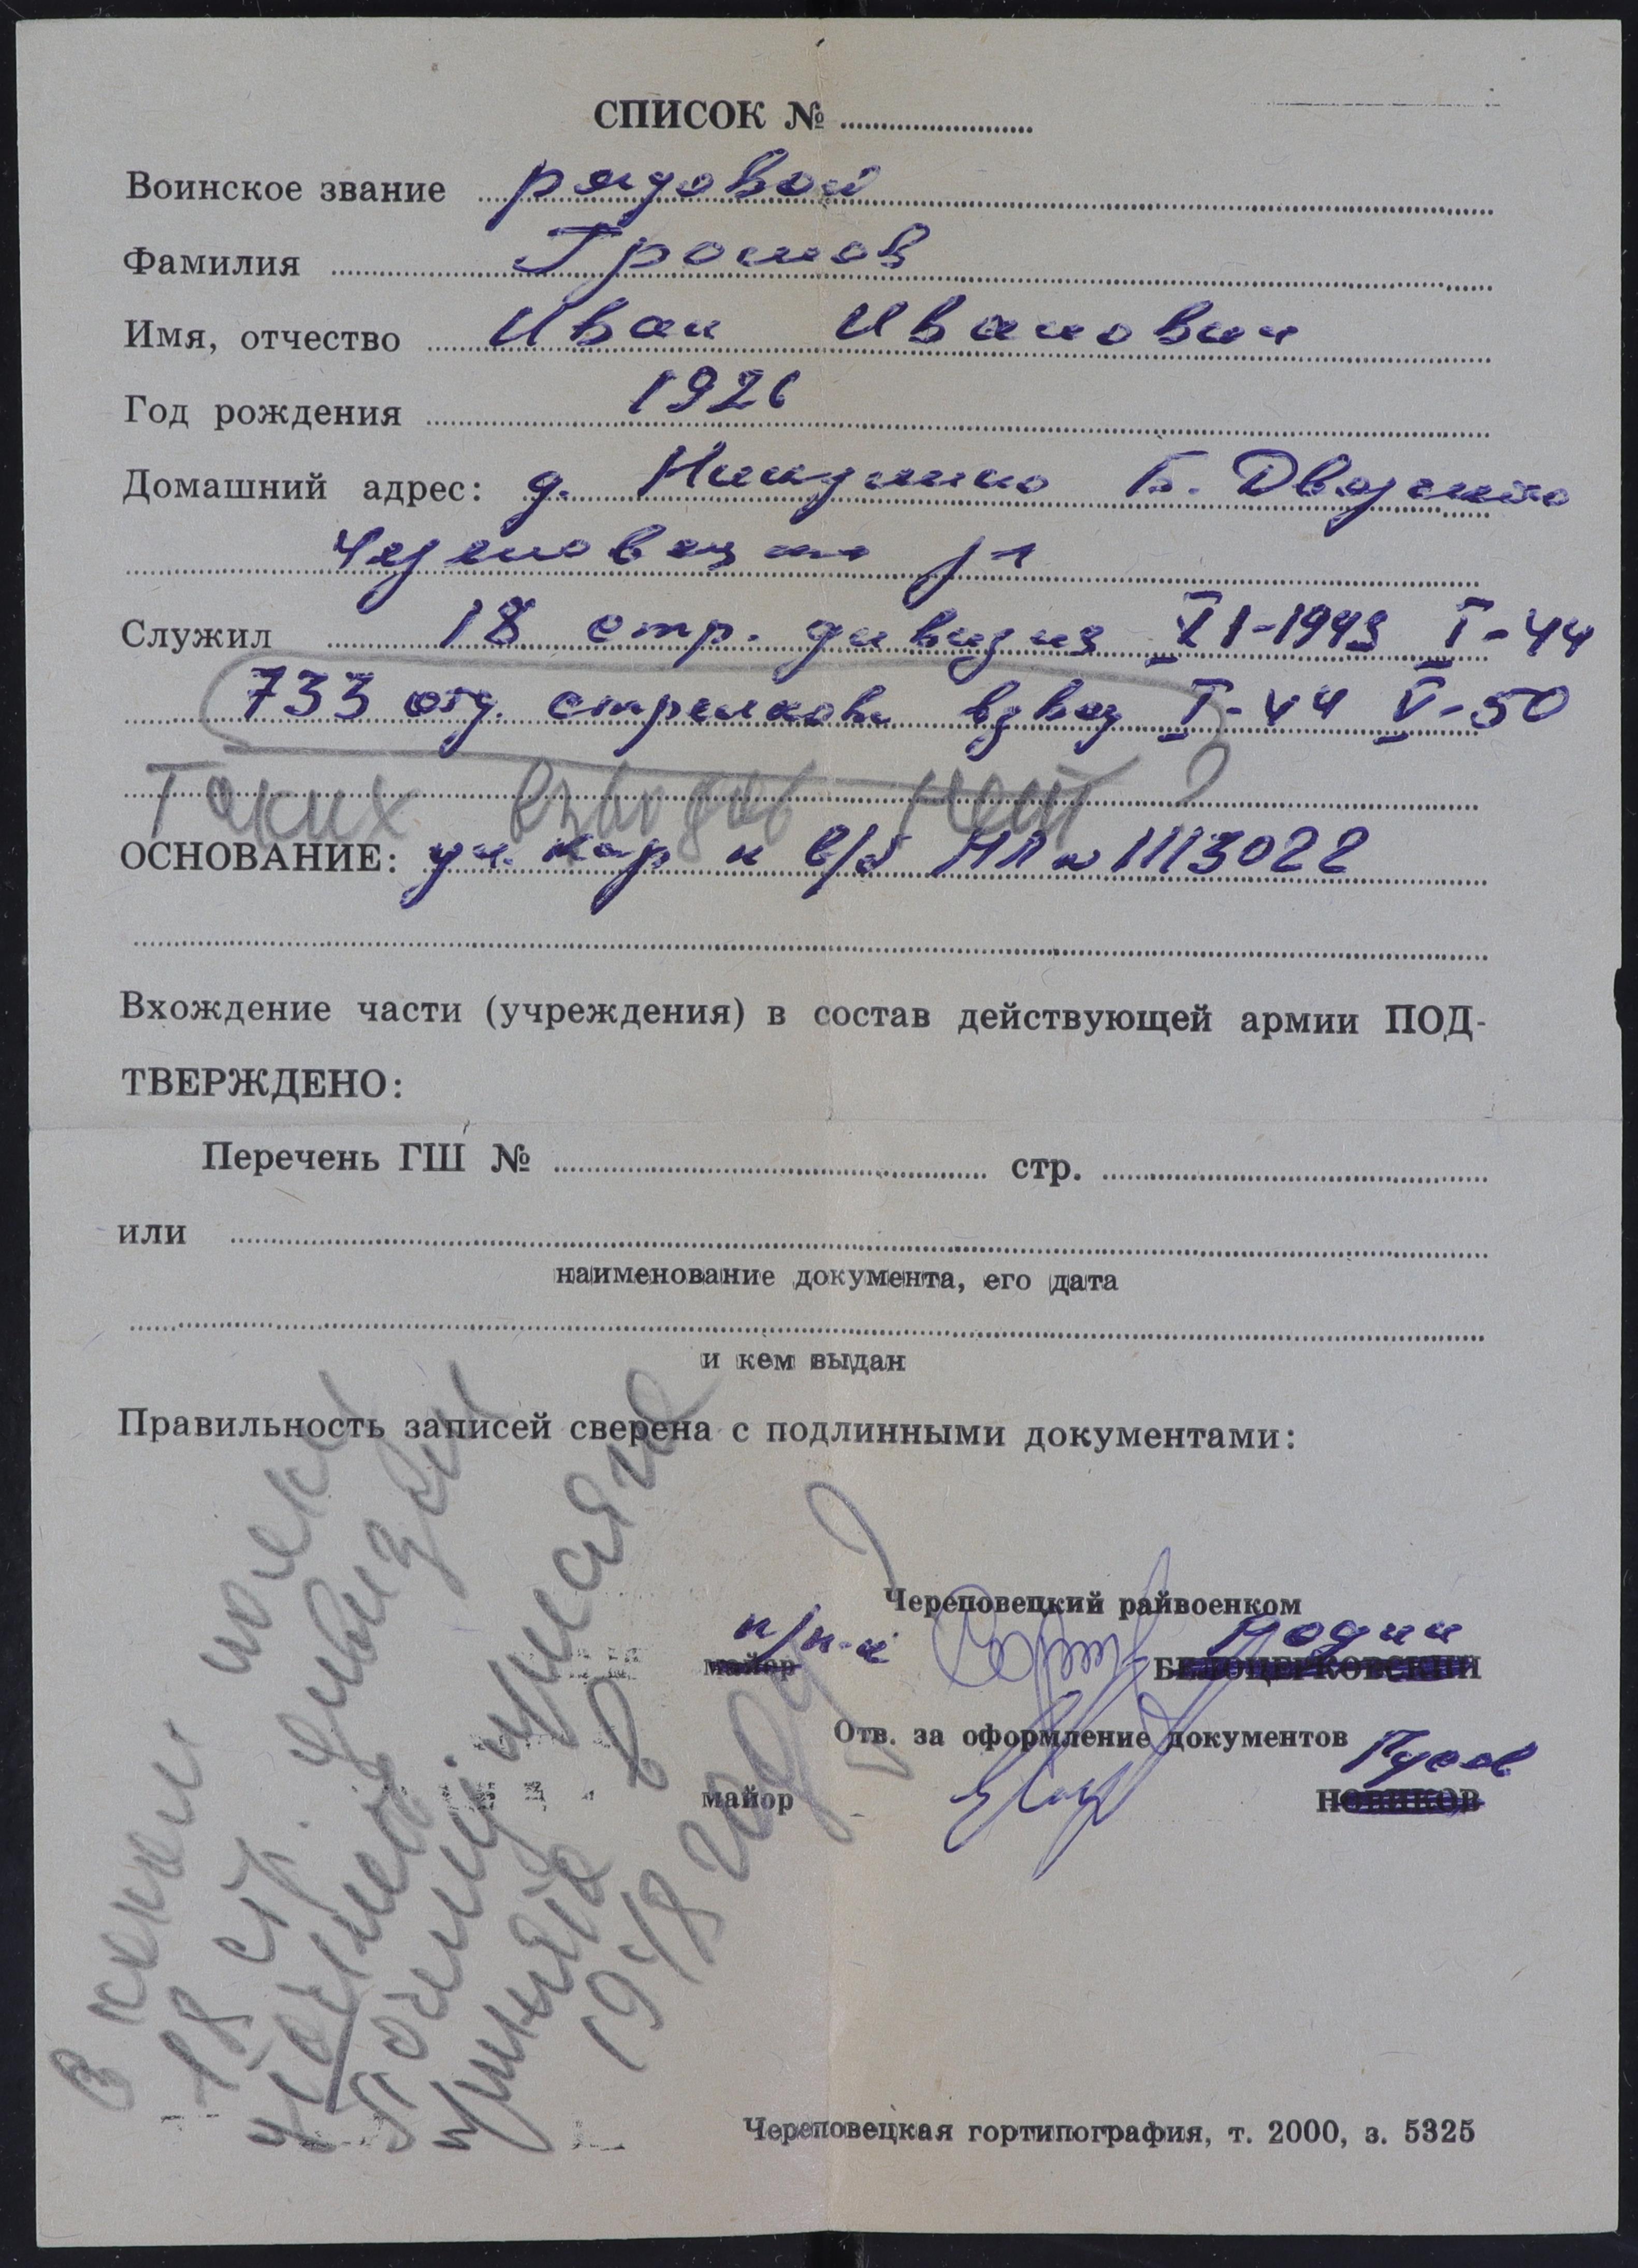 СПИСОК №
Воинское звание рядовой
Фамилия Громов
Имя, отчество Иван Иванович
Год рождения 1926
Домашний адрес: д. Б. Дворского
р-н
Служил 18 стр. дивизия XI-1943 I-44
733 отд. стрелков взвод I-44 V-50
Таких взводов нет ?
ОСНОВАНИЕ: уч. кар и в/б НЛ № 1113022
Вхождение части (учреждения) в состав действующей армии ПОД-
ТВЕРЖДЕНО:
Перечень ГШ № стр.
или
наименование документа, его дата
и кем выдан
Правильность записей сверена с подлинными документами:
Череповецкий райвоенком
п/п-к Модин
майор БЕЛОЦЕРКОВСКИЙ
Отв. за оформление документов
майор НОВИКОВ
В каком полку
18 ст. дивизии
Почему присяга
принята в
1948 году ?
Череповецкая гортипография, т. 2000, з. 5325